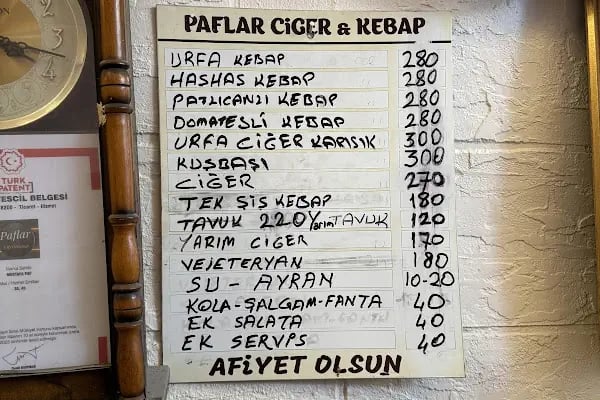 PAFLAR CİĞER & KEBAP
URFA KEBAP 280
HASHAS KEBAP 280
PATLICANLI KEBAP 280
DOMATESLİ KEBAP 280
URFA CİĞER KARISIK 300
KUŞBAŞI 300
CİĞER 270
TEK ŞİŞ KEBAP 180
TAVUK 220 Yarım TAVUK 120
YARIM CİGER 170
VEJETERYAN 180
SU - AYRAN 10-20
KOLA-ŞALGAM-FANTA 40
EK SALATA 40
EK SERVPS 40
AFİYET OLSUN
TÜRK
PATENT
TESCİL BELGESİ
Paflar